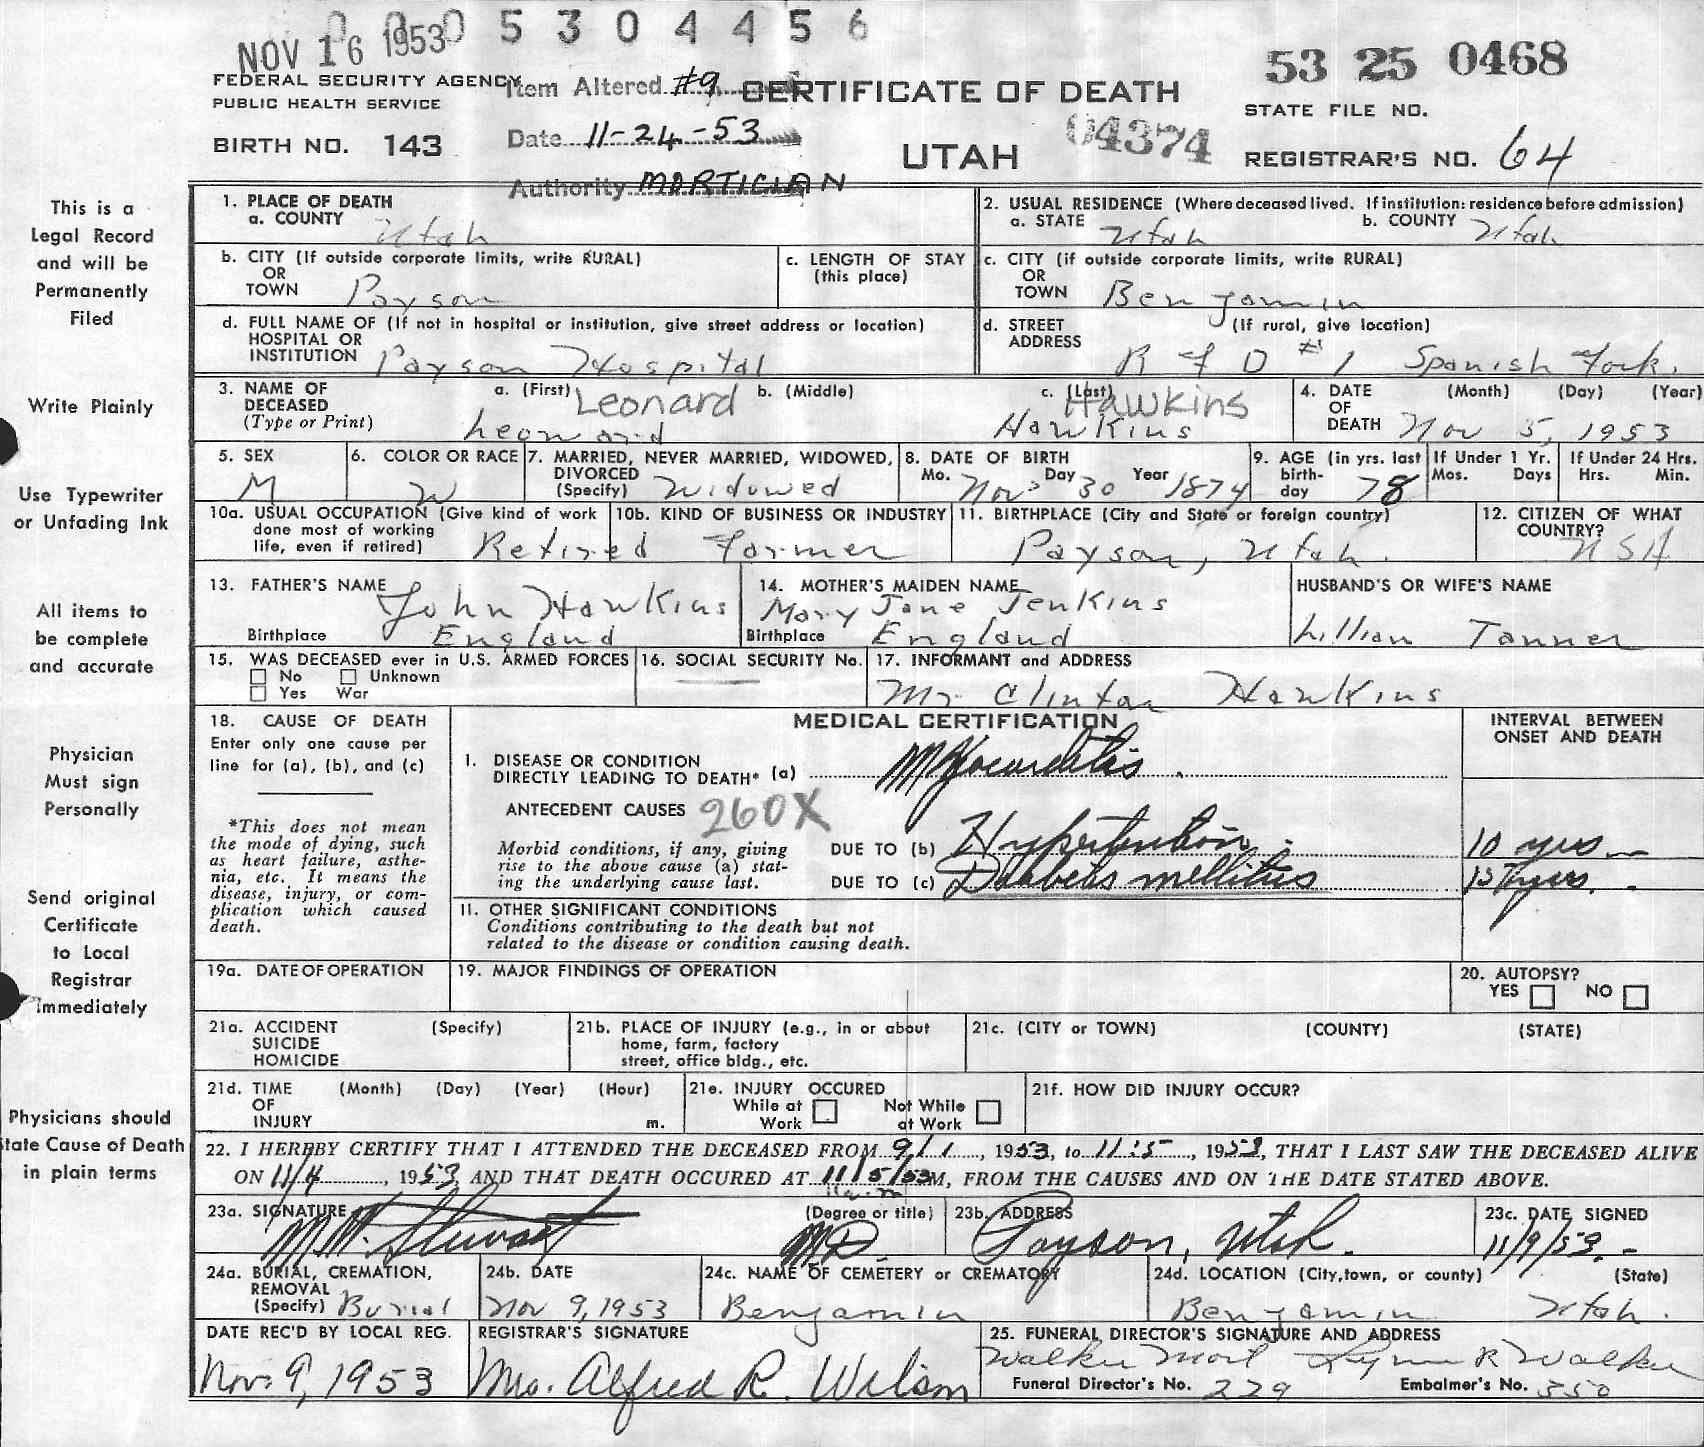 0 0 0 5 3 0 4 4 5 6
NOV 16 1953
FEDERAL SECURITY AGENCY
PUBLIC HEALTH SERVICE
BIRTH NO. 143
Item Altered #9
Date 11-24-53
Authority MORTICIAN
CERTIFICATE OF DEATH
UTAH
04374
53 25 0468
STATE FILE NO.
REGISTRAR'S NO. 64
This is a
Legal Record
and will be
Permanently
Filed
Write Plainly
Use Typewriter
or Unfading Ink
All items to
be complete
and accurate
Physician
Must sign
Personally
Send original
Certificate
to Local
Registrar
Immediately
Physicians should
State Cause of Death
in plain terms
1. PLACE OF DEATH
a. COUNTY Utah
2. USUAL RESIDENCE (Where deceased lived. If institution: residence before admission)
a. STATE Utah b. COUNTY Utah
b. CITY (If outside corporate limits, write RURAL)
OR
TOWN Payson
c. LENGTH OF STAY
(this place)
c. CITY (if outside corporate limits, write RURAL)
OR
TOWN Benjamin
d. FULL NAME OF (If not in hospital or institution, give street address or location)
HOSPITAL OR
INSTITUTION Payson Hospital
d. STREET (If rural, give location)
ADDRESS R F D #1 Spanish Fork.
3. NAME OF DECEASED
(Type or Print)
a. (First) Leonard b. (Middle) c. (Last) Hawkins
Leonard Hawkins
4. DATE (Month) (Day) (Year)
OF
DEATH Nov 5, 1953
5. SEX
M
6. COLOR OR RACE
W
7. MARRIED, NEVER MARRIED, WIDOWED,
DIVORCED
(Specify) Widowed
8. DATE OF BIRTH
Mo. Nov Day 30 Year 1874
9. AGE (in yrs. last
birth-
day 78
If Under 1 Yr.
Mos. Days
If Under 24 Hrs.
Hrs. Min.
10a. USUAL OCCUPATION (Give kind of work
done most of working
life, even if retired) Retired Farmer
10b. KIND OF BUSINESS OR INDUSTRY
11. BIRTHPLACE (City and State or foreign country)
Payson, Utah.
12. CITIZEN OF WHAT
COUNTRY?
USA
13. FATHER'S NAME John Hawkins
Birthplace England
14. MOTHER'S MAIDEN NAME
Mary Jane Jenkins
Birthplace England
HUSBAND'S OR WIFE'S NAME
Lillian Tanner
15. WAS DECEASED ever in U.S. ARMED FORCES
No Unknown
Yes War
16. SOCIAL SECURITY No.
17. INFORMANT and ADDRESS
Mr Clinton Hawkins
18. CAUSE OF DEATH
Enter only one cause per
line for (a), (b), and (c)
*This does not mean
the mode of dying, such
as heart failure, asthe-
nia, etc. It means the
disease, injury, or com-
plication which caused
death.
MEDICAL CERTIFICATION
INTERVAL BETWEEN
ONSET AND DEATH
I. DISEASE OR CONDITION
DIRECTLY LEADING TO DEATH* (a) Myocarditis
ANTECEDENT CAUSES 260X
Morbid conditions, if any, giving
rise to the above cause (a) stat-
ing the underlying cause last.
DUE TO (b) Hypertention 10 yrs
DUE TO (c) Diabetes mellitus yrs.
11. OTHER SIGNIFICANT CONDITIONS
Conditions contributing to the death but not
related to the disease or condition causing death.
19a. DATE OF OPERATION
19. MAJOR FINDINGS OF OPERATION
20. AUTOPSY?
YES NO
21a. ACCIDENT (Specify)
SUICIDE
HOMICIDE
21b. PLACE OF INJURY (e.g., in or about
home, farm, factory
street, office bldg., etc.
21c. (CITY or TOWN) (COUNTY) (STATE)
21d. TIME (Month) (Day) (Year) (Hour)
OF
INJURY m.
21e. INJURY OCCURED
While at Work Not While at Work
21f. HOW DID INJURY OCCUR?
22. I HEREBY CERTIFY THAT I ATTENDED THE DECEASED FROM 9/1, 1953, to 11:5, 1953, THAT I LAST SAW THE DECEASED ALIVE
ON 11/4, 1953, AND THAT DEATH OCCURED AT 11/5/53 M, FROM THE CAUSES AND ON THE DATE STATED ABOVE.
23a. SIGNATURE (Degree or title)
Stewart MD.
23b. ADDRESS
Payson, Utah.
23c. DATE SIGNED
11/9/53.
24a. BURIAL, CREMATION,
REMOVAL
(Specify) Burial
24b. DATE
Nov 9, 1953
24c. NAME OF CEMETERY or CREMATORY
Benjamin
24d. LOCATION (City, town, or county) (State)
Benjamin Utah.
DATE REC'D BY LOCAL REG.
Nov. 9, 1953
REGISTRAR'S SIGNATURE
Mrs. Alfred R. Wilson
25. FUNERAL DIRECTOR'S SIGNATURE AND ADDRESS
Walker Mort Lynn R Walker
Funeral Director's No. 229 Embalmer's No. 350